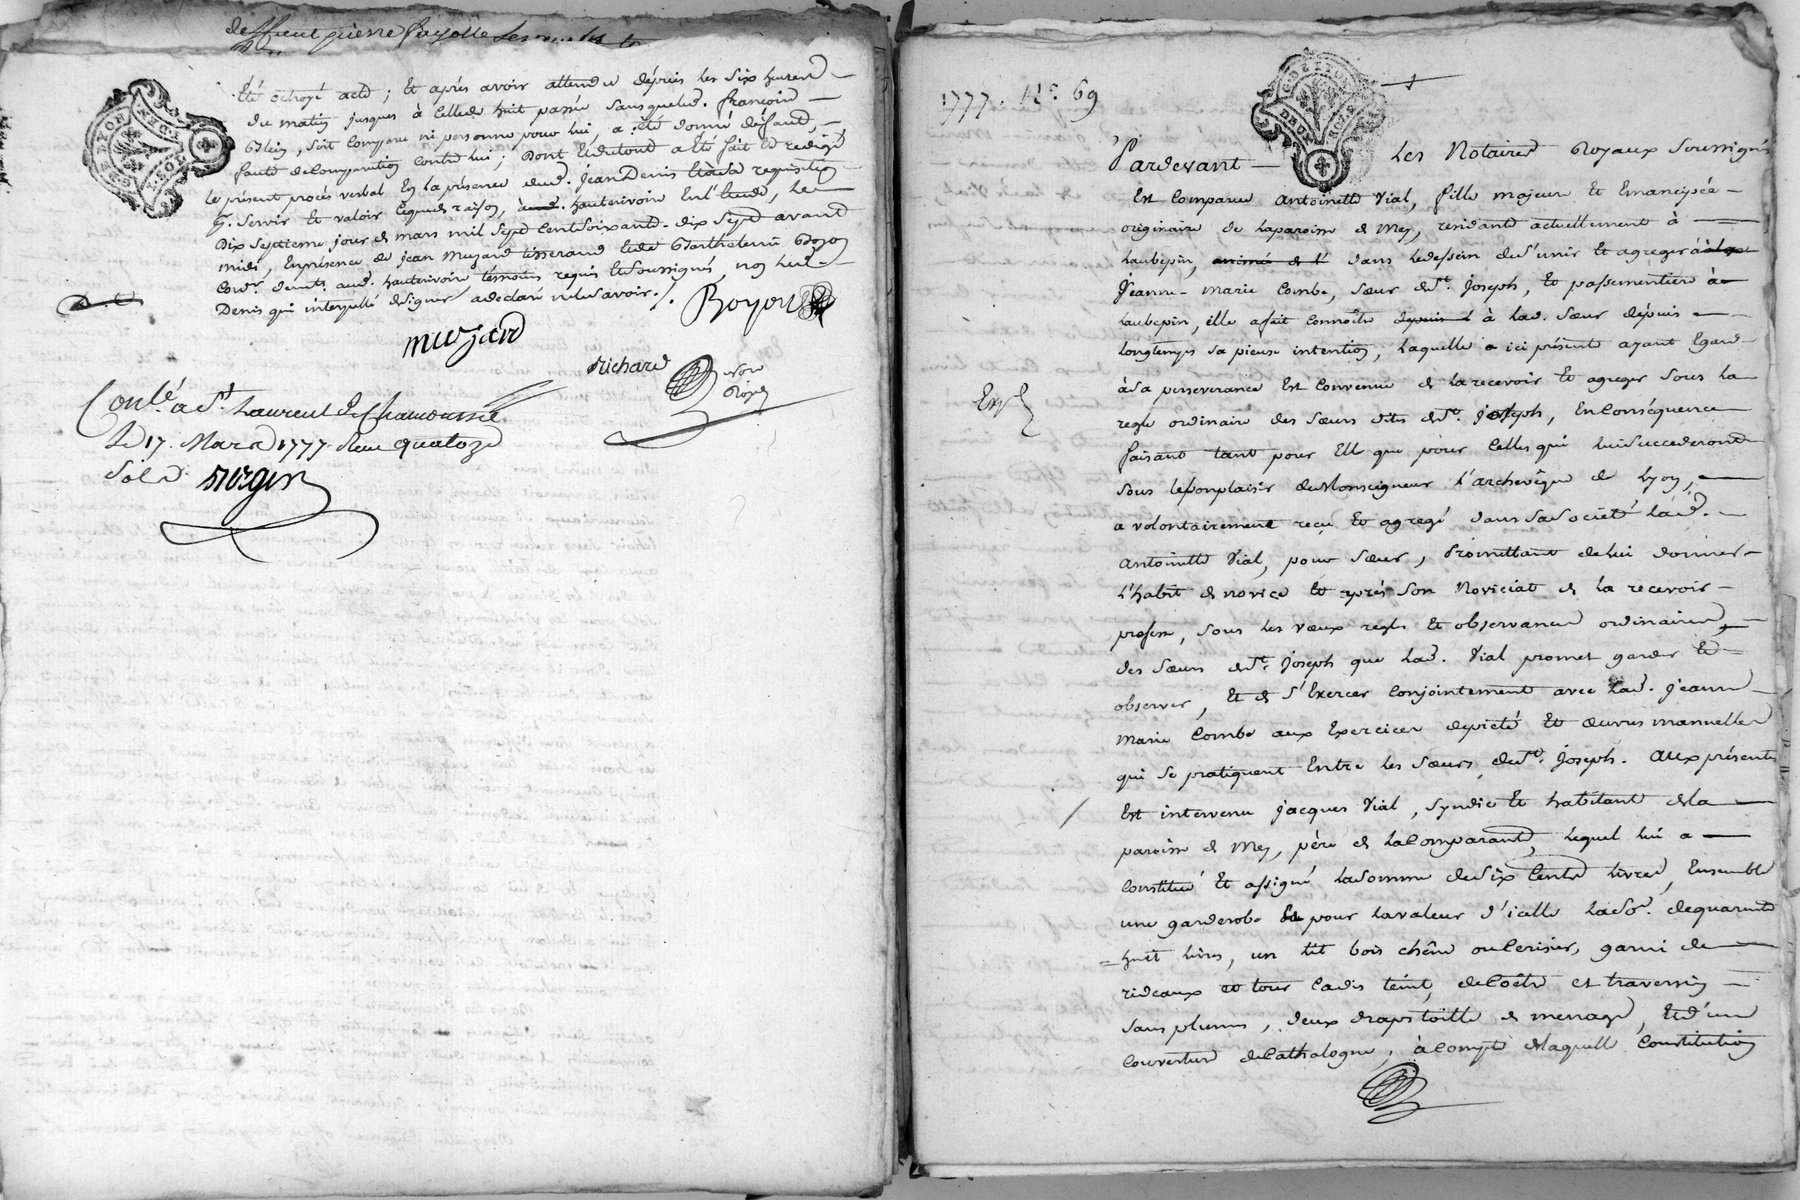 deffunt pierre fayolle
Eté octroyé acte ; Et aprés avoir attendu dépuis les six heures
du matin jusques à Celle de huit passée sans que led. françois
soit Comparu ni personne pour lui, a été donné défaut,
faute de Comparution Contre lui ; Dont Et du tout a été fait Et redigé
le présent procès verbal En la présence dud. Jean Denis requisition
Servir Et valoir Ce que de raison, hauterivoire En l'Etude, le
Dix Septieme jour de mars mil Sept Cent Soixante-dix Sept avant
midi, En présence de jean Muzard tisserand Et de Barthelemi Boyon
Cord.r dem.t aud. hauterivoire témoins requis Et Soussignés, non led.
Denis qui interpellé de signer a déclaré ne le savoir.
Boyon
muzard
richard
no.re
Royal
Con.lé à S.t Laurent de Chamousset
Le 17. Mars 1777. Reçu quatorze
Sols
GDELYON
DEUX SOLS
1777. N.o 69
Pardevant Les Notaires Royaux Soussignés
Est Comparue Antoinette Vial, fille majeure Et Emancipée
originaire de la paroisse de Mey, residante actuellement à
Laubepin, animée de l' dans le dessein de s'unir Et agreger à la
Jeanne-Marie Combe, Sœur de S.t Joseph, Et passementiere à
Laubepin, elle a fait Connoître depuis l à lad. Sœur dépuis
longtemps sa pieuse intention, laquelle a ici présente ayant Egard
à sa perseverance Est Convenue de la recevoir Et agreger Sous la
Exp.é
regle ordinaire des Sœurs dites de S.t Joseph, En Conséquence
faisant tant pour Elle que pour Celles qui lui Succederont
Sous le bon plaisir de Monseigneur l'archevêque de Lyon,
a volontairement reçu Et agregé dans sa Societé lad.
Antoinette Vial, pour Sœur, Promettant de lui donner
l'habit de novice Et aprés Son Noviciat de la recevoir
professe, Sous les vœux regle Et observance ordinaires
des Sœurs de S.t Joseph que lad. Vial promet garder Et
observer, Et de s'Exercer Conjointement avec lad. Jeanne
Marie Combe aux Exercices de pieté Et œuvres manuelles
qui se pratiquent Entre les Sœurs de S.t Joseph. Aux présentes
Est intervenu Jacques Vial, Syndic Et habitant de la
paroisse de Mey, père de la Comparante, lequel lui a
Constitué Et assigné la Somme de Six Cents livres, Ensemble
une garderobe pour la valeur d'icelle la So.e de quarante
huit livres, un lit bois chêne ou Cerisier, garni de
rideaux et tour Cadis teint, de Coëtre et traversin
Sans plumes, deux draps toille de menage, Et d'une
Couverture de Cathalogne, à Compte de laquelle Constitution